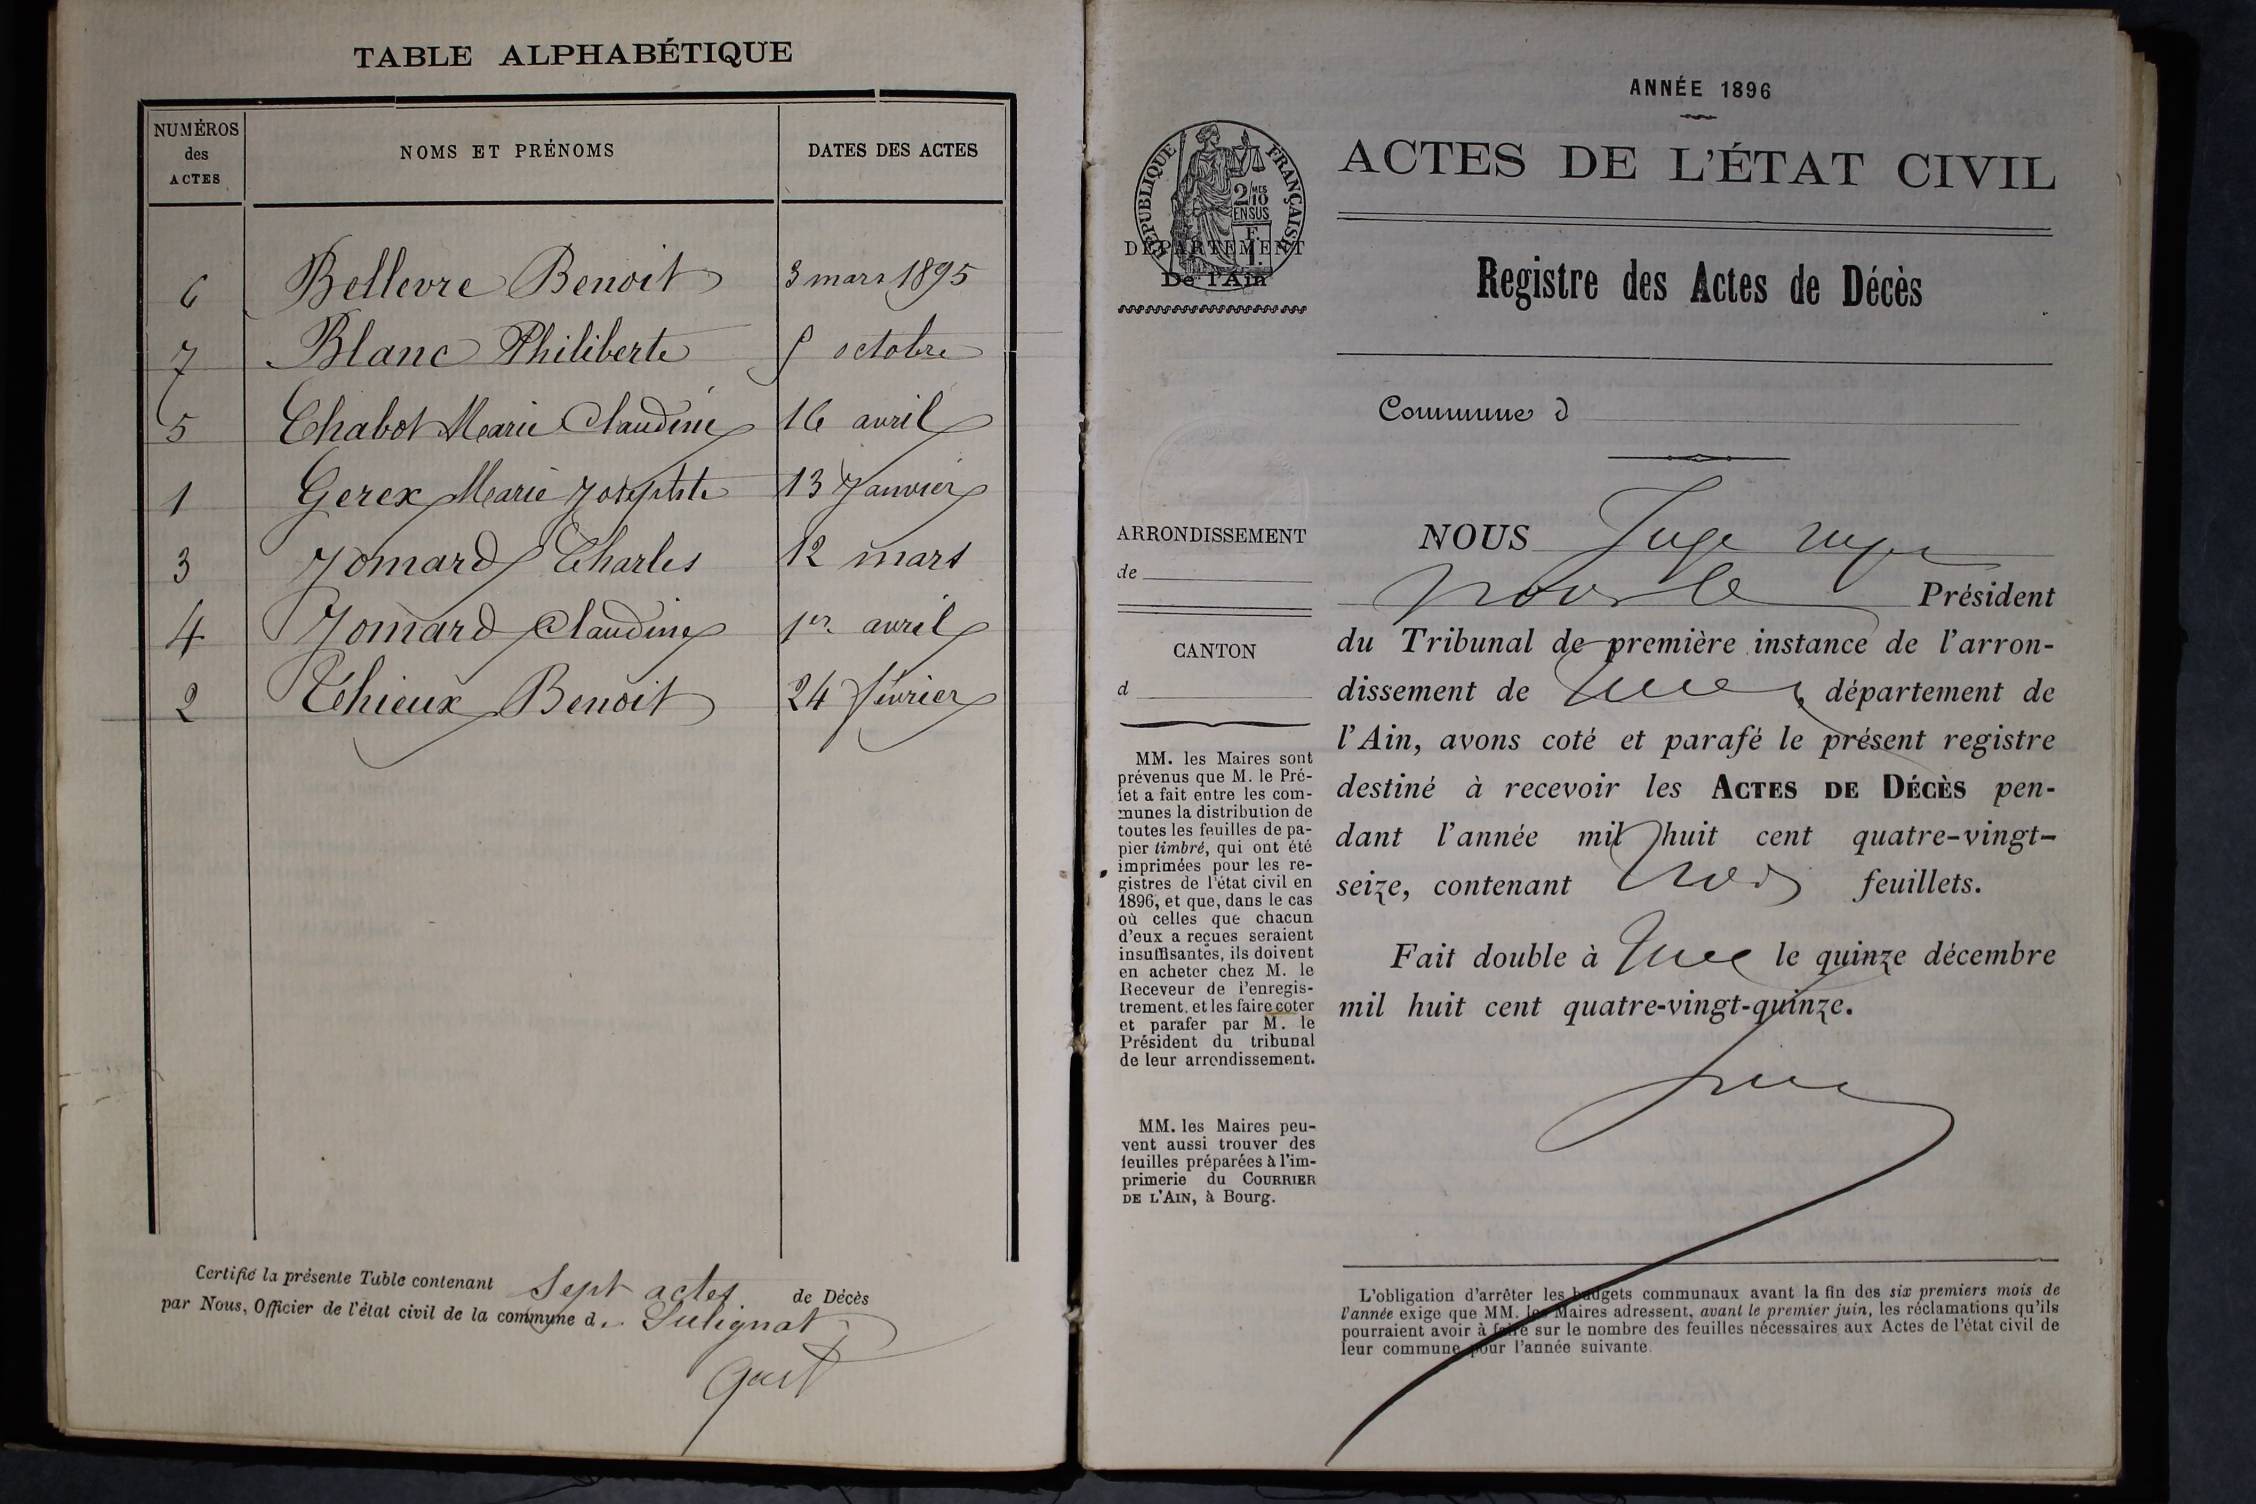 TABLE ALPHABÉTIQUE
NUMÉROS des ACTES NOMS ET PRÉNOMS DATES DES ACTES
6 Bellevre Benoit 3 mars 1895
7 Blanc Philiberte 9 octobre
5 Chabot Marie Claudine 16 avril
1 Gerex Marie Josephte 13 Janvier
3 Jomard Charles 12 mars
4 Jomard Claudine 1er avril
2 Thieux Benoit 24 février
Certifié la présente Table contenant Sept actes de Décès
par Nous, Officier de l'état civil de la commune d. Sulignat
ANNÉE 1896
RÉPUBLIQUE FRANÇAISE
2/10 MES
EN SUS
1 F.
DÉPARTEMENT
De l'Ain
ACTES DE L'ÉTAT CIVIL
Registre des Actes de Décès
Commune d
ARRONDISSEMENT
de
CANTON
d
MM. les Maires sont
prévenus que M. le Pré-
fet a fait entre les com-
munes la distribution de
toutes les feuilles de pa-
pier timbré, qui ont été
imprimées pour les re-
gistres de l'état civil en
1896, et que, dans le cas
où celles que chacun
d'eux a reçues seraient
insuffisantes, ils doivent
en acheter chez M. le
Receveur de l'enregis-
trement, et les faire coter
et parafer par M. le
Président du tribunal
de leur arrondissement.
MM. les Maires peu-
vent aussi trouver des
feuilles préparées à l'im-
primerie du COURRIER
DE L'AIN, à Bourg.
NOUS Juge
pour le Président
du Tribunal de première instance de l'arron-
dissement de , département de
l'Ain, avons coté et parafé le présent registre
destiné à recevoir les ACTES DE DÉCÈS pen-
dant l'année mil huit cent quatre-vingt-
seize, contenant trois feuillets.
Fait double à le quinze décembre
mil huit cent quatre-vingt-quinze.
L'obligation d'arrêter les budgets communaux avant la fin des six premiers mois de
l'année exige que MM. les Maires adressent, avant le premier juin, les réclamations qu'ils
pourraient avoir à faire sur le nombre des feuilles nécessaires aux Actes de l'état civil de
leur commune pour l'année suivante.